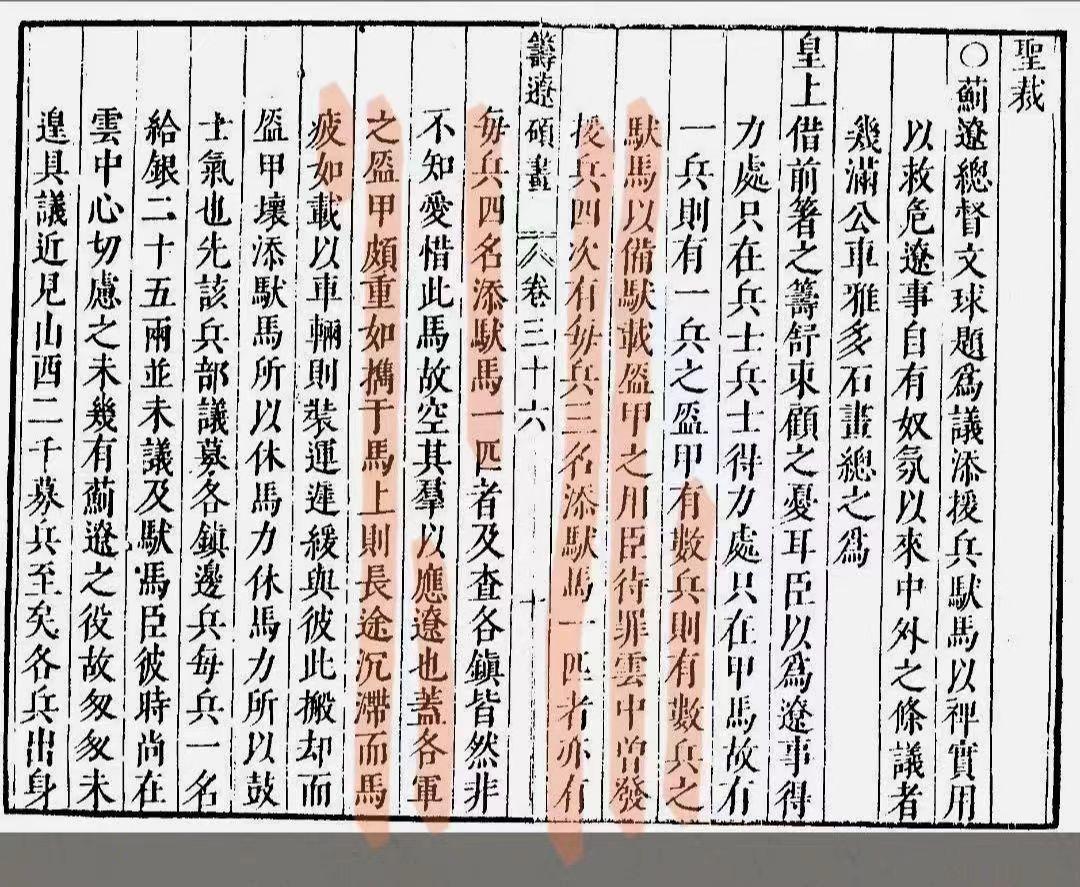 聖裁
○薊遼總督文球題爲議添援兵馱馬以裨實用
以救危遼事自有奴氛以來中外之條議者
幾滿公車雅多石畫總之爲
皇上借前箸之籌舒東顧之憂耳臣以爲遼事得
力處只在兵士兵士得力處只在甲馬故有
一兵則有一兵之盔甲有數兵則有數兵之
馱馬以備馱載盔甲之用臣待罪雲中曾發
援兵四次有每兵三名添馱馬一匹者亦有
籌遼碩畫 卷三十六 十
每兵四名添馱馬一匹者及查各鎮皆然非
不知愛惜此馬故空其羣以應遼也蓋各軍
之盔甲頗重如擕于馬上則長途沉滯而馬
疲如載以車輛則裝運遲緩與彼此搬却而
盔甲壞添馱馬所以休馬力休馬力所以鼓
士氣也先該兵部議募各鎮邊兵每兵一名
給銀二十五兩並未議及馱馬臣彼時尚在
雲中心切慮之未幾有薊遼之役故匆匆未
遑具議近見山西二千募兵至矣各兵出身